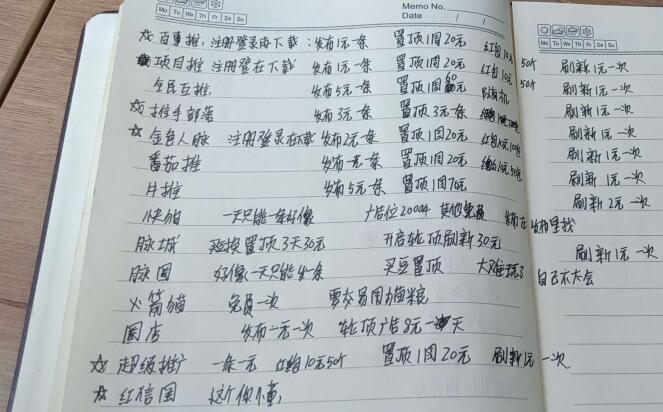 Memo No.
Mo Tu We Th Fr Sa Su
Date / /
Mo Tu We Th Fr Sa Su
☆ 百事推, 注册登录再下载: 发布1元一条 置顶1周20元 红包10元 50个 刷新1元一次
项目推 注册登在下载 发布1元一条 置顶1周20元 红包10元 50个 刷新1元一次
全民互推 发布5元一条 置顶1周 刷新1元一次
☆ 推手部落 发布3元一条 置顶3元一条 刷新1元一次
☆ 金色人脉 注册登录在下载 发布2元一条 置顶1周20元 刷新1元一次
番茄推 发布一元一条 置顶1周20元 刷新1元一次
片推 发布5元一条 置顶1周70元 刷新2元一次
快猫 一天只能一条好像 广告位200个 其他免费 发布在 发布里找
脉城 延换置顶3天30元 开启轮顶刷新30元 刷新1元一次
脉圈 好像一天只能发一条 买豆置顶 自己不大会
火箭猫 免费一次 要交易用猫粮
圈店 发布一元一次 轮顶广告8元一天
☆ 超级推广 一条一元 红包10元50个 置顶1周20元 刷新1元一次
☆ 红信圈 这个你懂